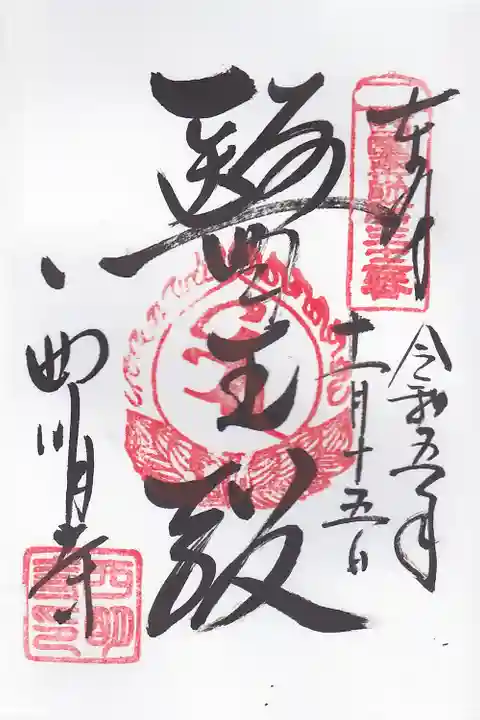 奉拝
令和五年
十一月十五日
醫王殿
西明寺
西明
寺印